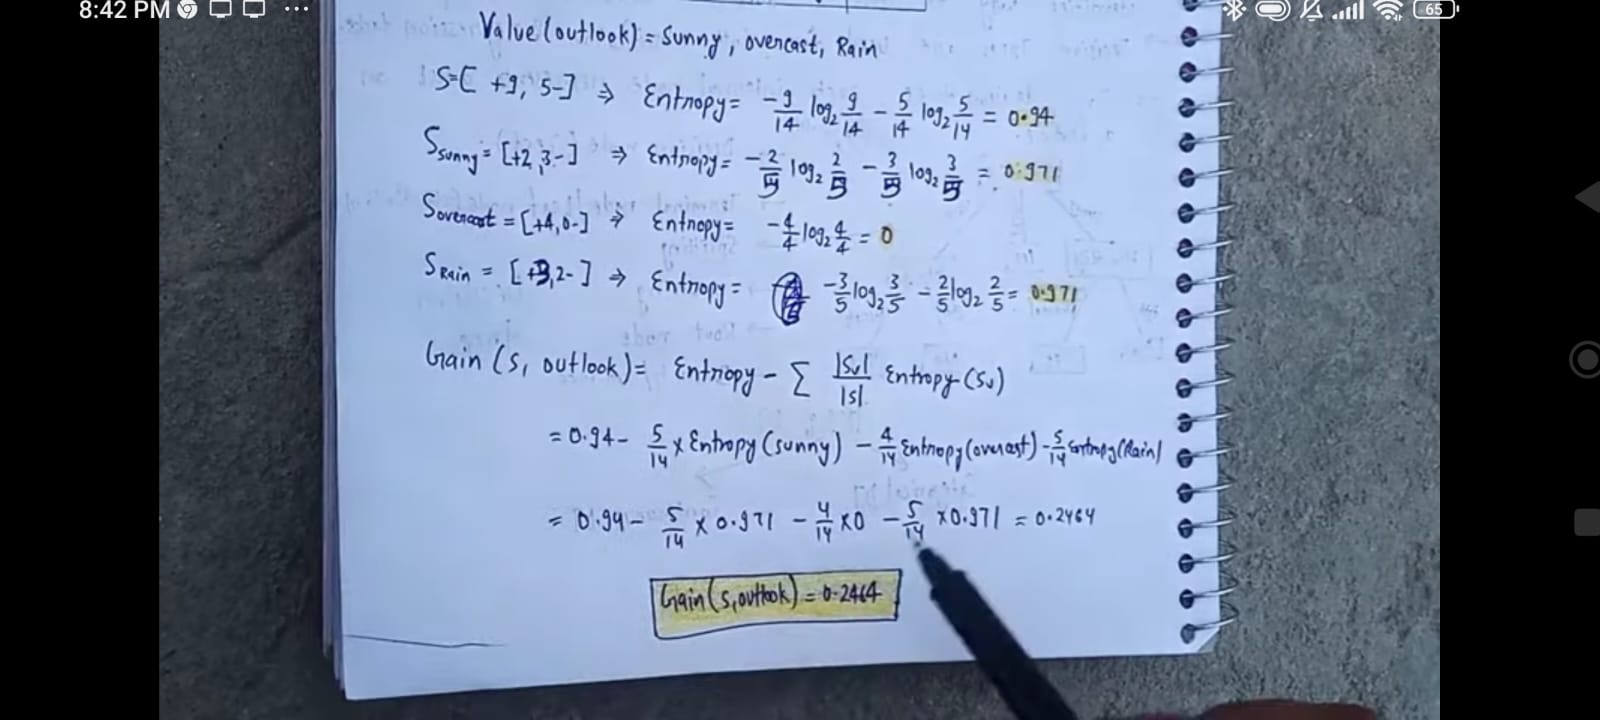 8:42 PM
65
Value (outlook) = Sunny, overcast, Rain
S=[ +9, 5-] ⇒ Entropy = -9/14 log₂ 9/14 - 5/14 log₂ 5/14 = 0.94
S sunny = [+2, 3-] ⇒ Entropy = -2/5 log₂ 2/5 - 3/5 log₂ 3/5 = 0.971
S overcast = [+4, 0-] ⇒ Entropy = -4/4 log₂ 4/4 = 0
S Rain = [+3, 2-] ⇒ Entropy = -3/5 log₂ 3/5 - 2/5 log₂ 2/5 = 0.971
Gain (S, outlook) = Entropy - Σ |Sv|/|S| Entropy (Sv)
= 0.94 - 5/14 × Entropy (sunny) - 4/14 Entropy (overcast) - 5/14 Entropy (Rain)
= 0.94 - 5/14 × 0.971 - 4/14 × 0 - 5/14 × 0.971 = 0.2464
Gain (S, outlook) = 0.2464